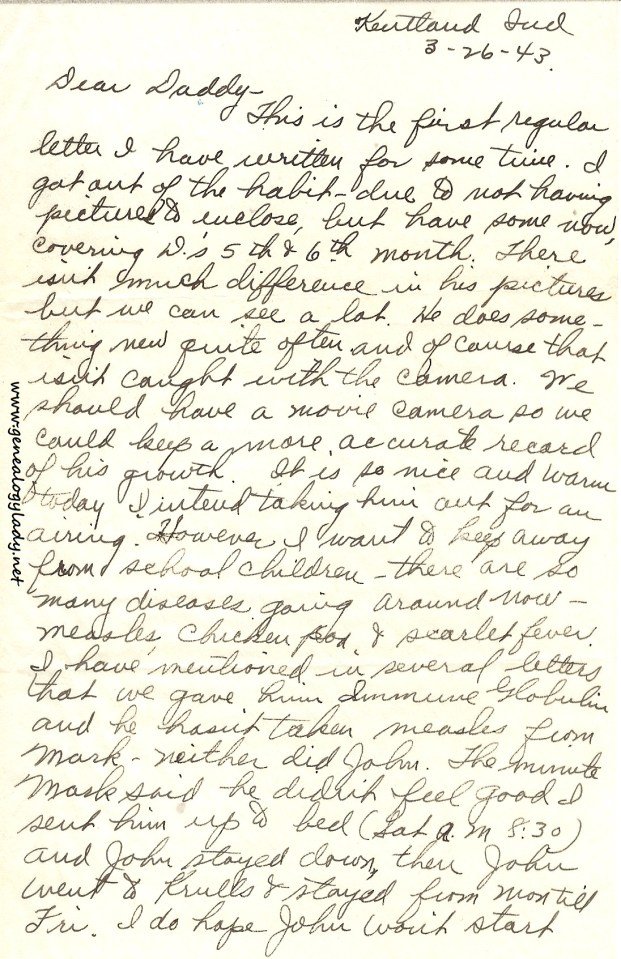 Kentland Ind
3-26-43.
Dear Daddy-
This is the first regular
letter I have written for some time. I
got out of the habit - due to not having
pictures to inclose, but have some now,
covering D.'s 5th & 6th month. There
isn't much difference in his pictures
but we can see a lot. He does some-
thing new quite often and of course that
isn't caught with the camera. We
should have a movie camera so we
could keep a more accurate record
of his growth. It is so nice and warm
today I intend taking him out for an
airing. However I want to keep away
from school children - there are so
many diseases going around now -
measles, chicken pox & scarlet fever.
I have mentioned in several letters
that we gave him Immune Globulin
and he hasn't taken measles from
Mark - neither did John. The minute
Mark said he didn't feel good I
sent him up to bed (Sat a.m 8:30)
and John stayed down, then John
went to Krulls & stayed from Mon till
Fri. I do hope John won't start
www.genealogylady.net